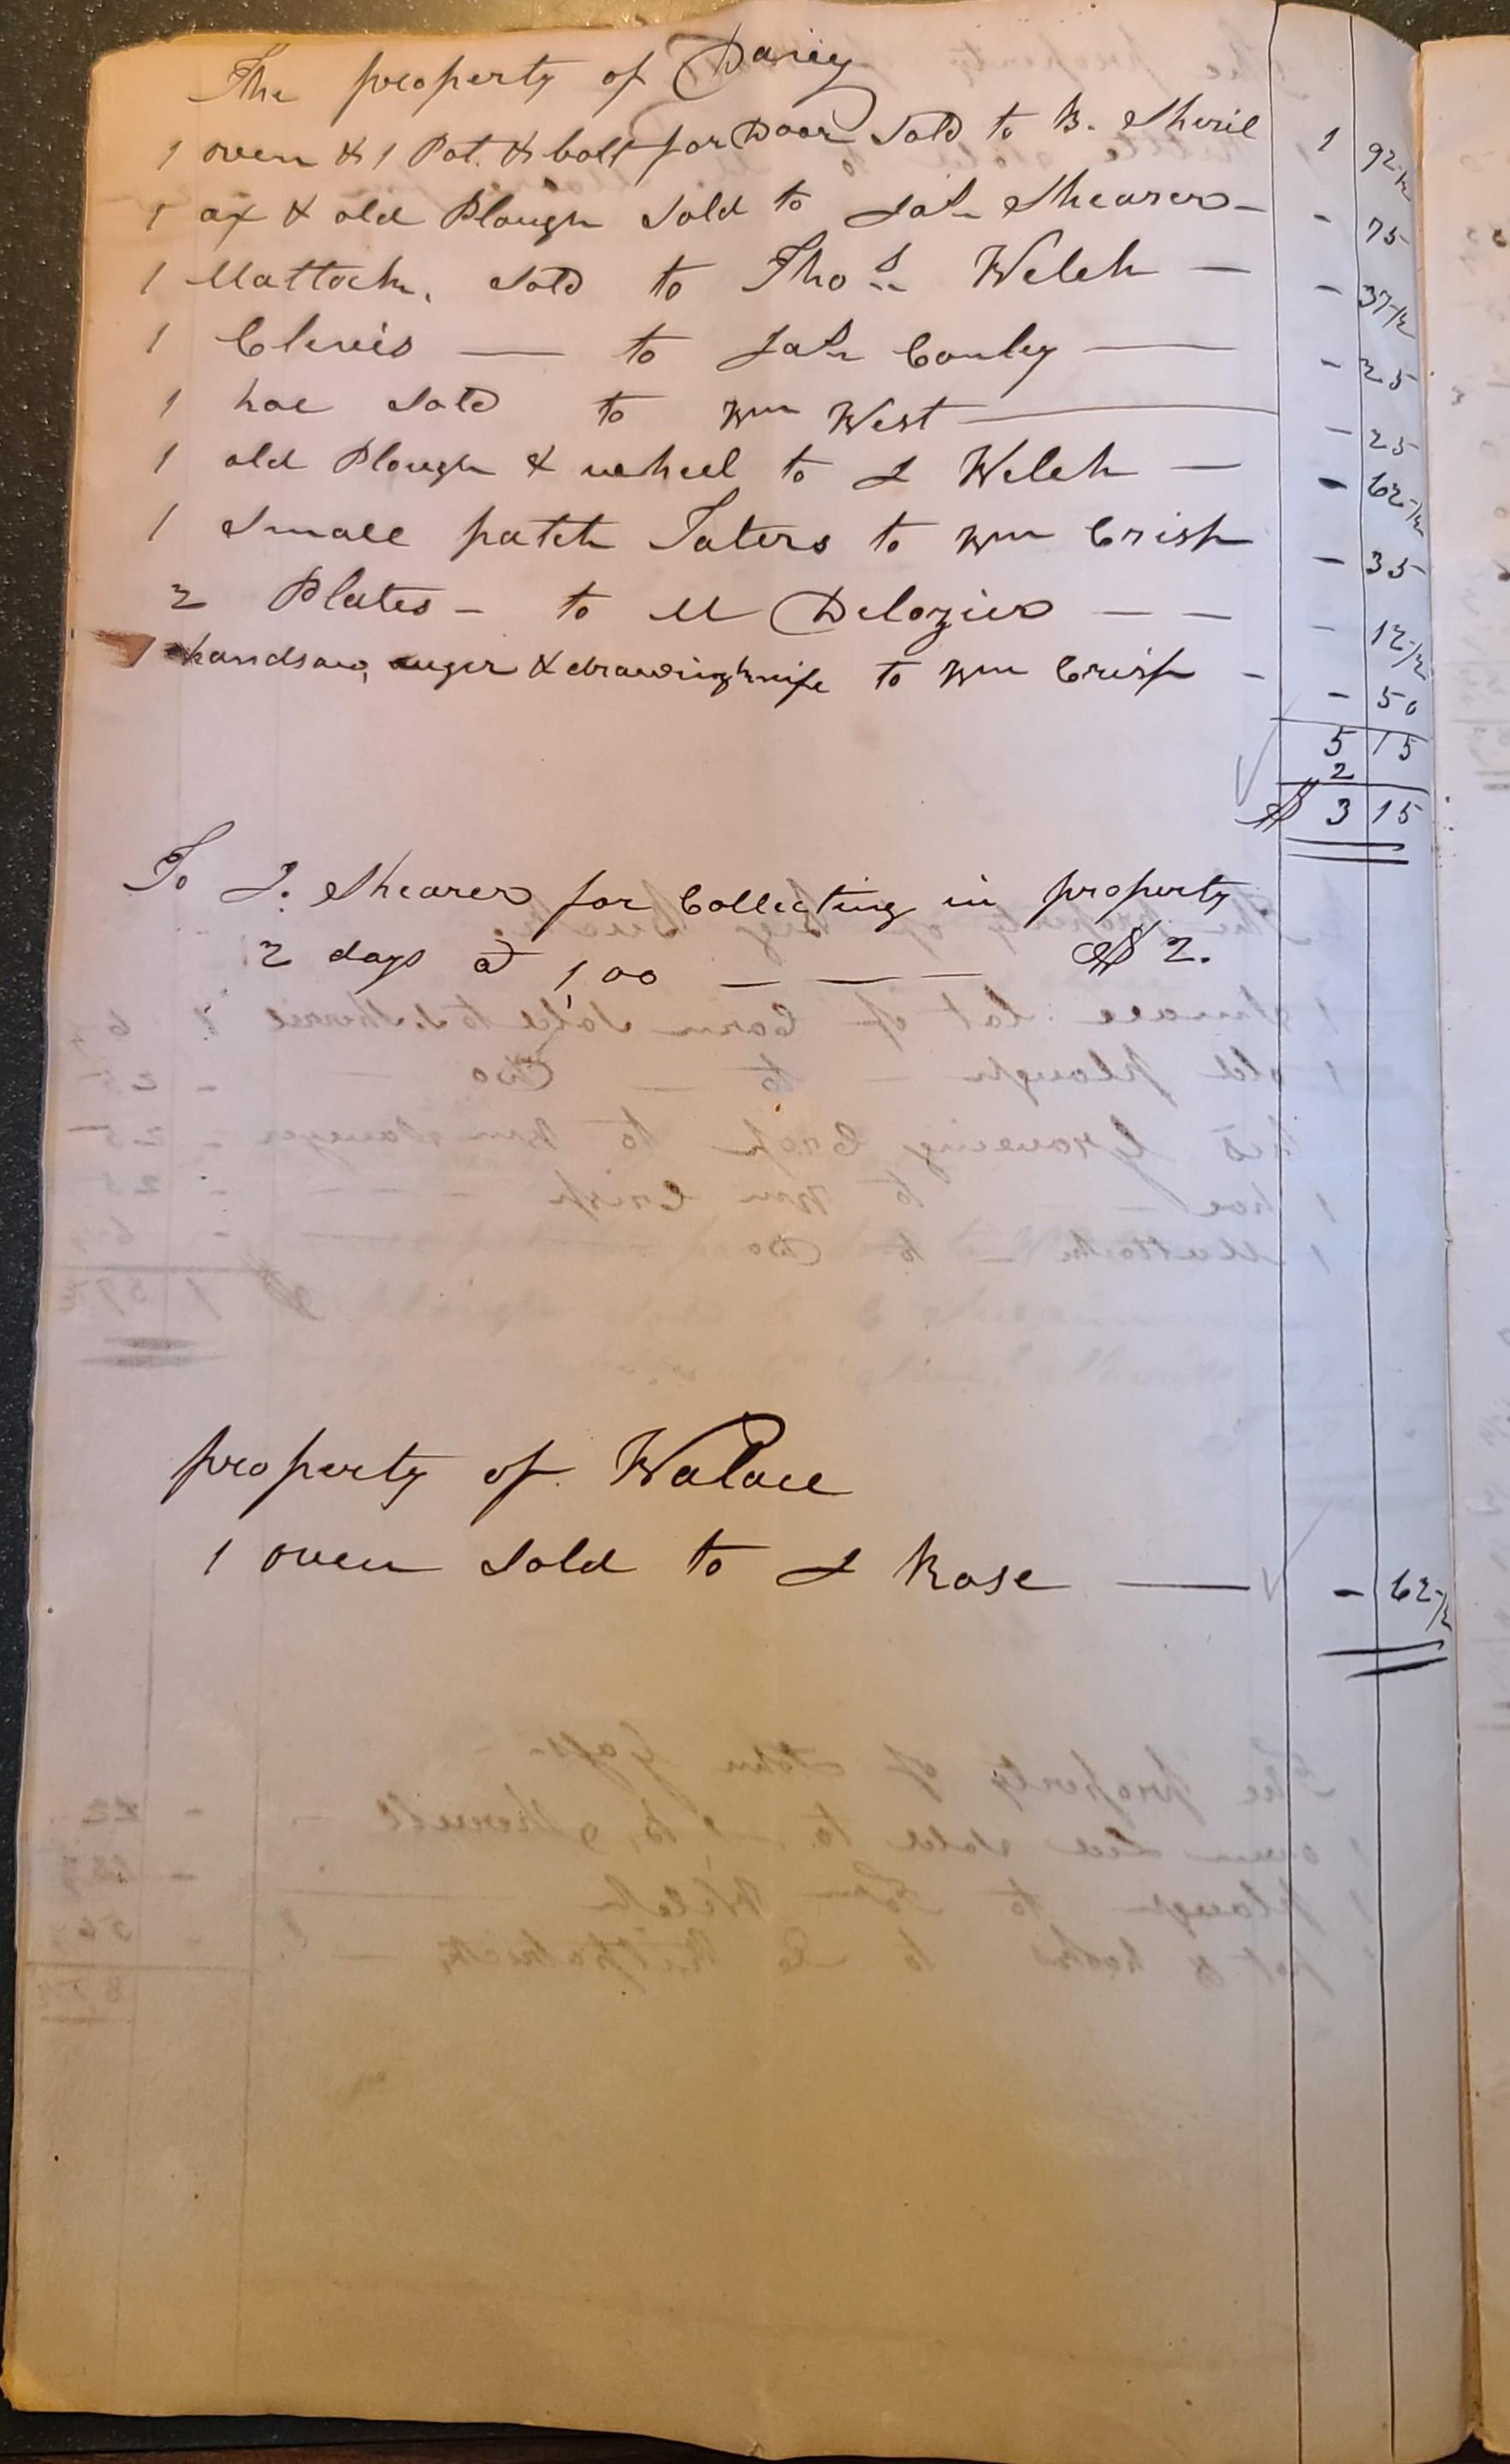 The property of Darcy
1 oven & 1 Pot. & bolt for Door Sold to B. Sheril 1 92 1/2
1 ax & old Plough Sold to Jas Shearer - - 75
1 Mattock. Sold to Thos Welch — - 37 1/2
1 Clevis — to Jas Conley — - 25
1 hoe Sold to Wm West — - 25
1 old Plough & wheel to J Welch — - 62 1/2
1 Small patch Taters to Wm Crisp - 35
2 Plates - to M Delozier — — - 12 1/2
1 handsaw, auger & drawingknife to Wm Crisp - - 50
5 15
2
$ 3 15
To J. Shearer for Collecting in property
2 days @ 1,00 — — — $ 2.
property of Walace
1 oven Sold to J Rose — - 62 1/2